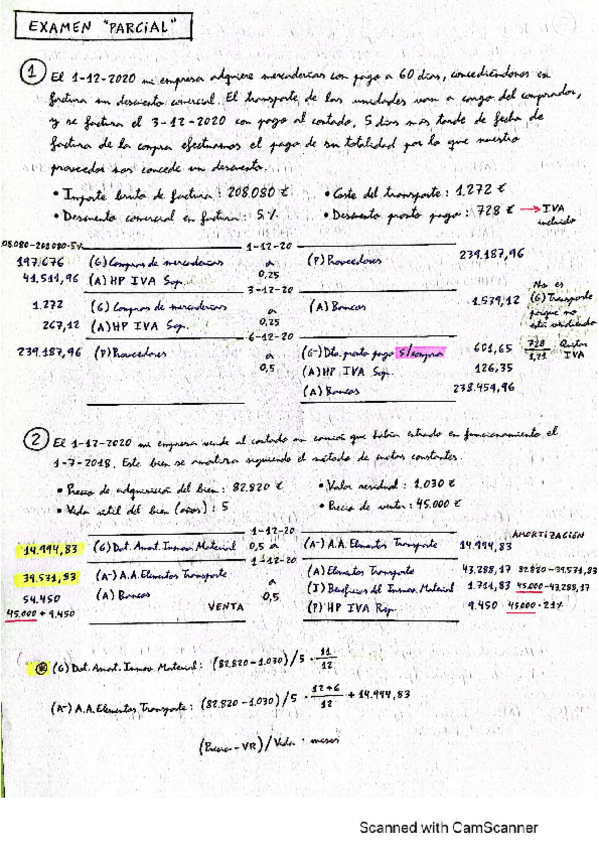 EXAMEN "PARCIAL"
① El 1-12-2020 mi empresa adquiere mercaderías con pago a 60 días, concediéndonos en
factura un descuento comercial. El transporte de las unidades van a cargo del comprador,
y se factura el 3-12-2020 con pago al contado. 5 días mas tarde de fecha de
factura de la compra efectuamos el pago de su totalidad por lo que nuestro
proveedor nos concede un descuento.
• Importe bruto de factura: 208.080 €
• Coste del transporte: 1.272 €
• Descuento comercial en factura: 5%
• Descuento pronto pago: 728 € → IVA incluido
08.080-208.080·5%
1-12-20
197.676 (G) Compras de mercaderías a (P) Proveedores 239.187,96
41.511,96 (A) HP IVA Sop. 0,25
3-12-20
1.272 (G) Compras de mercaderías a (A) Bancos 1.539,12
267,12 (A) HP IVA Sop. 0,25
No es (G) Transporte porque no está vendiendo
6-12-20
239.187,96 (P) Proveedores a (G-) Dto. pronto pago s/compras 601,65 728/1,21 Quitar IVA
0,5 (A) HP IVA Sop. 126,35
(A) Bancos 238.459,96
② El 1-12-2020 mi empresa vende al contado un camión que había entrado en funcionamiento el
1-7-2018. Este bien se amortiza siguiendo el método de cuotas constantes.
• Precio de adquisición del bien: 82.820 €
• Valor residual: 1.030 €
• Vida útil del bien (años): 5
• Precio de venta: 45.000 €
1-12-20
AMORTIZACIÓN
14.994,83 (G) Dot. Amort. Inmov. Material 0,5 a (A-) A.A. Elementos Transporte 14.994,83
1-12-20
39.531,83 (A-) A.A. Elementos Transporte a (A) Elementos Transporte 43.288,17 82.820-39.531,83
54.450 (A) Bancos 0,5 (I) Beneficios del Inmov. Material 1.711,83 45.000-43.288,17
45.000 + 9.450 VENTA (P) HP IVA Rep. 9.450 45.000·21%
⊛ (G) Dot. Amort. Inmov. Material: (82.820-1.030)/5 · 11/12
(A-) A.A. Elementos Transporte: (82.820-1.030)/5 · 12+6/12 + 14.994,83
(Precio-VR)/Vida · meses
Scanned with CamScanner